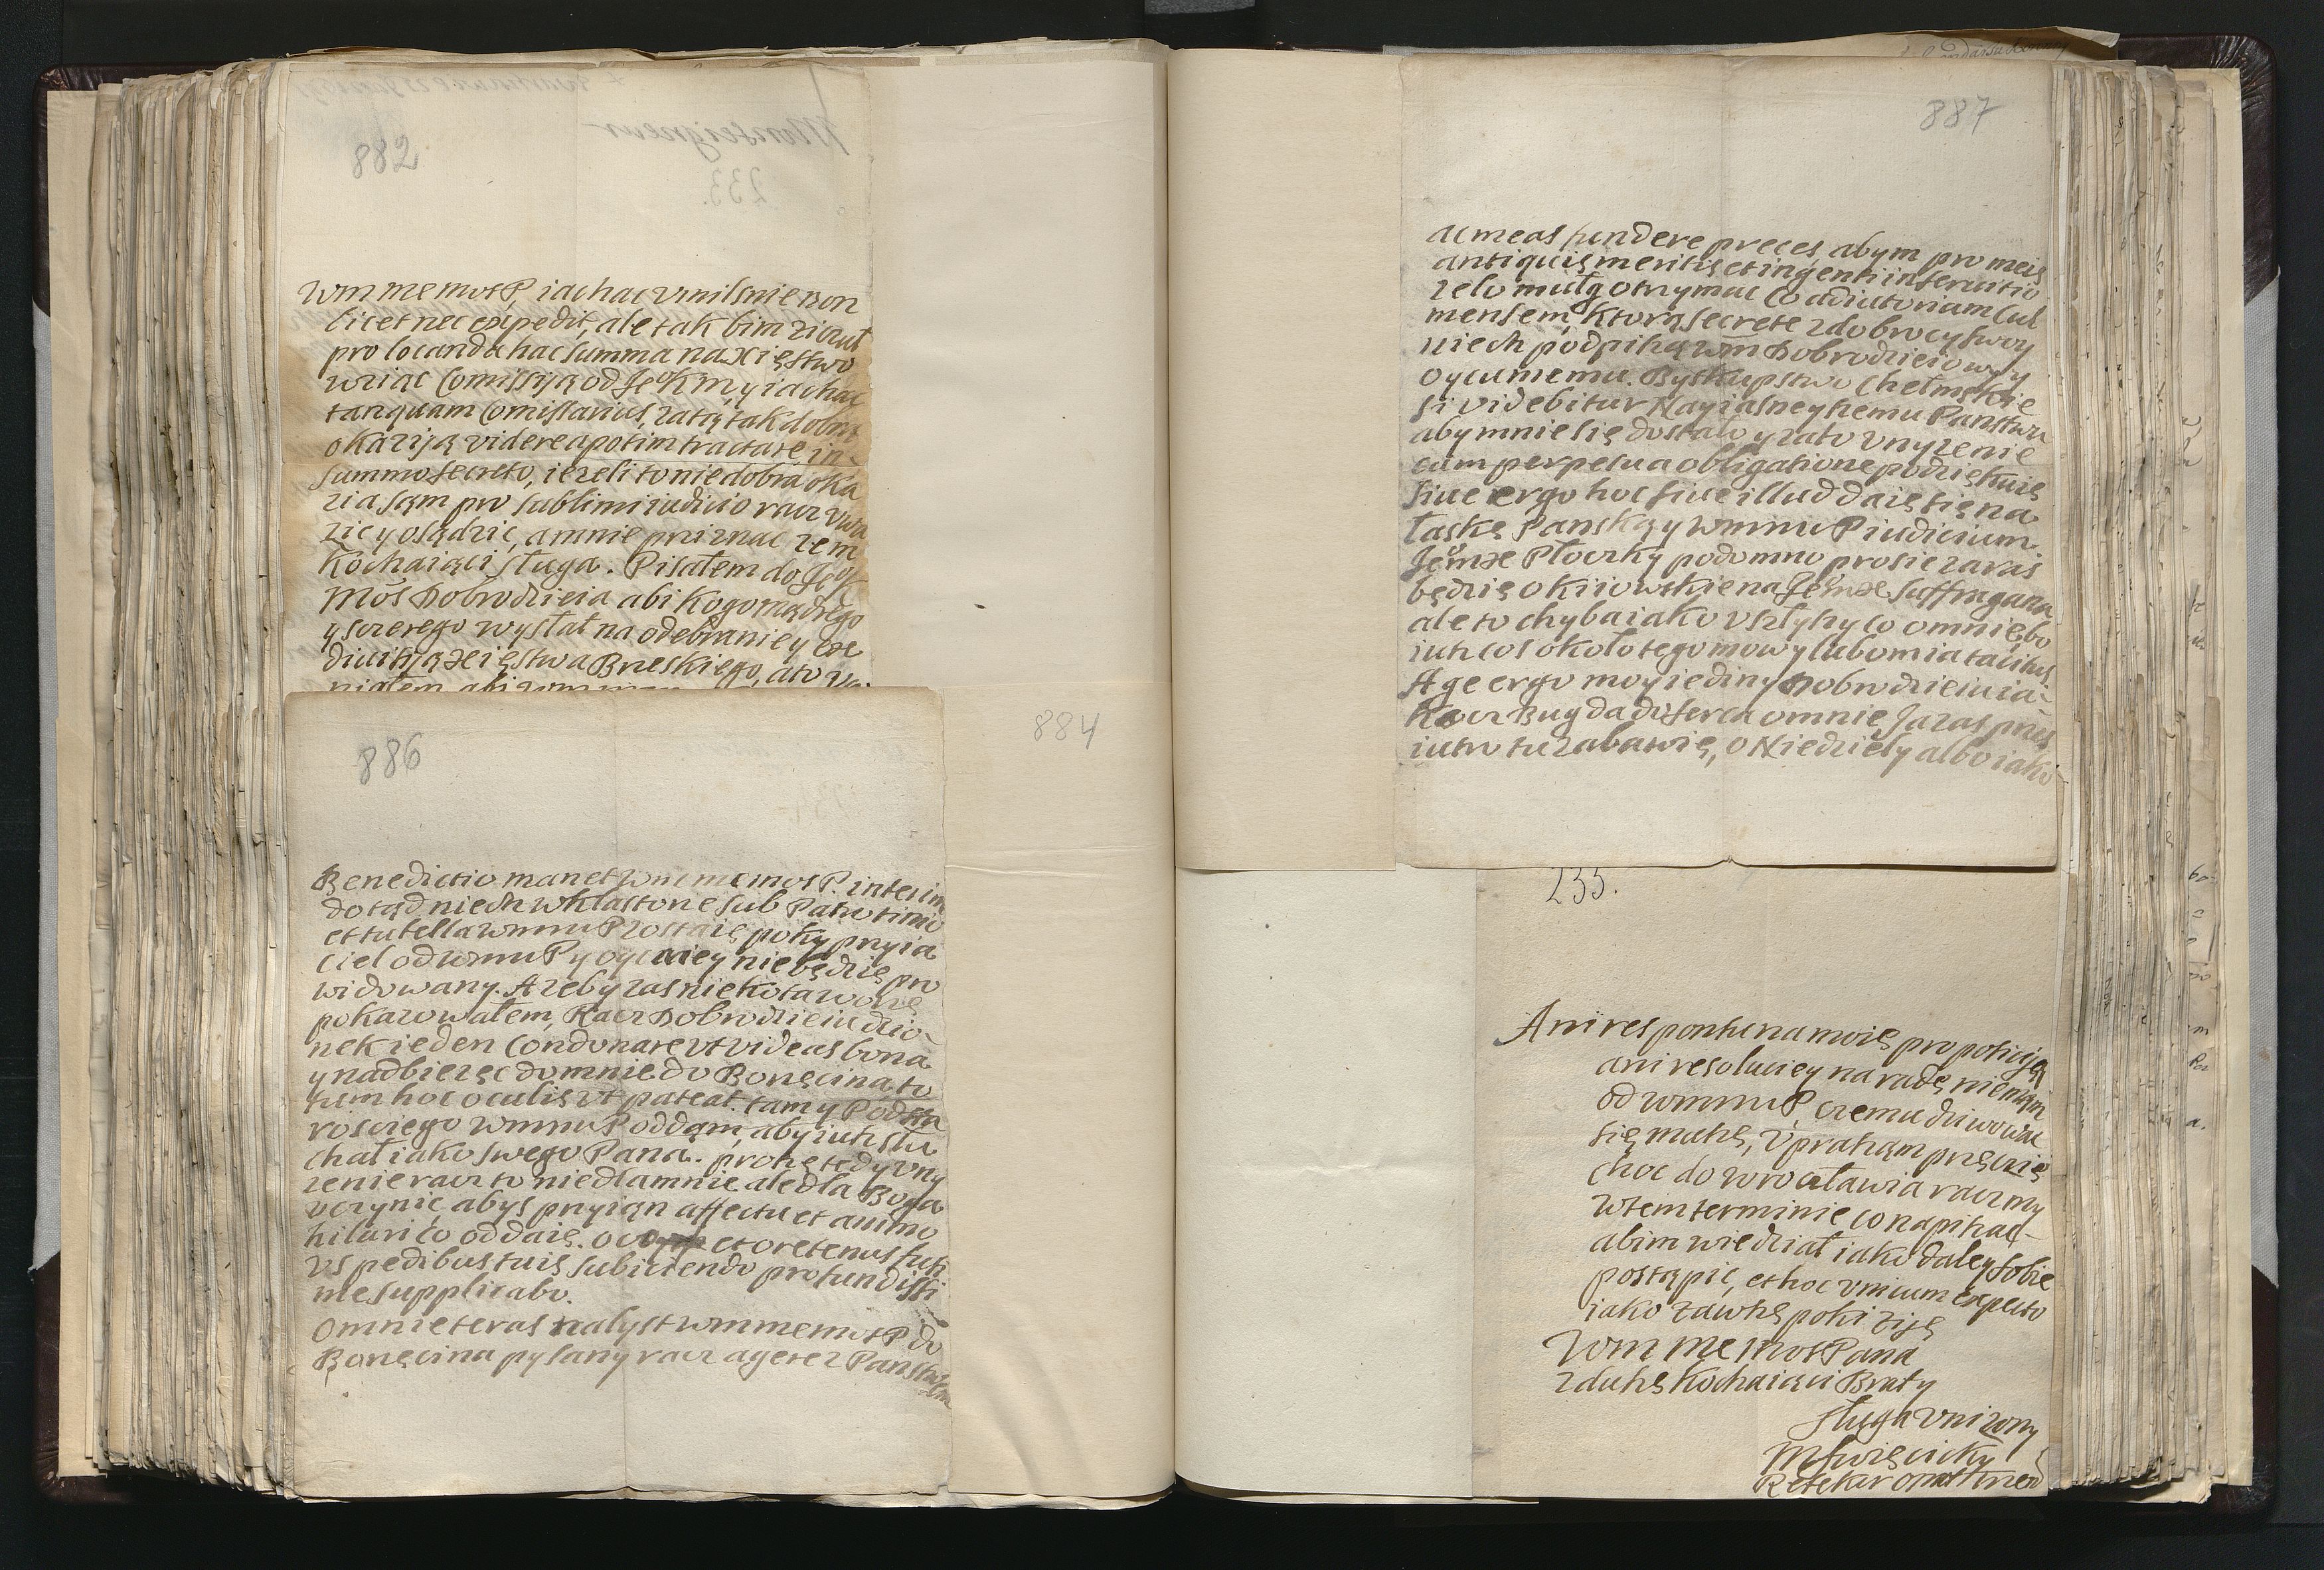 882
Wm me mos P, iachac vmilsnie non
licet nec expedit, ale tak bim zicził
pro locanda hac summa na Xięstwo
wziąc Comissyią od Je° K M, y iachac
tanquam Comissarius, zatą tak dobrą
okaziją videre a potim tractare in
summo secreto, iezeli to nie dobra oka
zia sąm pro sublimi iudicio racz vwa
zic y osądzic, a mnie priznac zem
kochaiąci sługa. Pisałem do Je°
Mos Dobrodzieia abi kogo mądrego
y sczerego wysłał na odebranie y exe
Xięstwa Brzeskiego, a to
886
Benedictio manet Wm me mos P. interim
dotąd niech w klastorze sub Patrotinio
et tutella Wmmu P zostaię poky pryia
ciel od Wmmu P y oyczicy niebędzię pro
widowany. A zeby zas nie kota w worze
pokazowałem, Racz Dobrodzieiu dzio-
nek ieden Condonare vt videas bona
y nadbiezęc do mnie do Bonęcina, to
tum hoc oculis vt pateat. tam y Podsta
rosciego Wmmu P oddąm, aby iuh słu
chał iako swego Pana. prohę tedy vny
zenie racz to nie dla mnie ale dla Boga
vczynic, abys pryiąn affectu et animo
hilari co oddaię. o co et oretenus fuh
vs pedibus tuis subiiciendo profundissi
me supplicabo.
O mnie teras na lyst Wm me mos P do
Bonęcina pysany racz agere z Panstwem
884
887
ac meas fundere preces, abym pro meis
antiquis meritis et ingenti in servitio
zelo mułg otrymac Co adiutoriam Cul
mensem, ktorą secrete z dobrocy swoy
niech podpihą Wm Dobrodzieiowy y
oycu memu. Byskupstwo Chełmskie
si videbitur Nayiasneyhemu Panstwu
aby mnie się dostało y zato vnyzenie
cum perpetua obligatione podziękuię
siue ergo hoc siue illud daię się na
łaskę Panską y Wmmu P iudicium.
Jemxe Płoczky podomno prosic zaras
będzię o kiiowskie na Jemxe Suffragana
ale to chyba iako vszlyhy co o mnię, bo
iuh cos około tego mowy lubo mia tacitus
Age ergo moy iediny Dobrodzieiu ia-
ko cz Bug da do serca o mnie zaras pres
iutro tu zabawię, o Niedziely albo iako
235.
Ani responhu na moię propohicję
ani resoluciey na radę niemąm
od Wmmu P, czemu dziwowac
się muhę, Vprahąm pręczię
choc do Wrocławia racz my
w tem terminie co napihac
abim wiedział iako daley sobie
postąpic, et hoc vnicum expecto
iako zawhę poki ziię
Wm me mos Pana
z duhę kochaiąci Braty
sługa vnizony
M Swięcicky